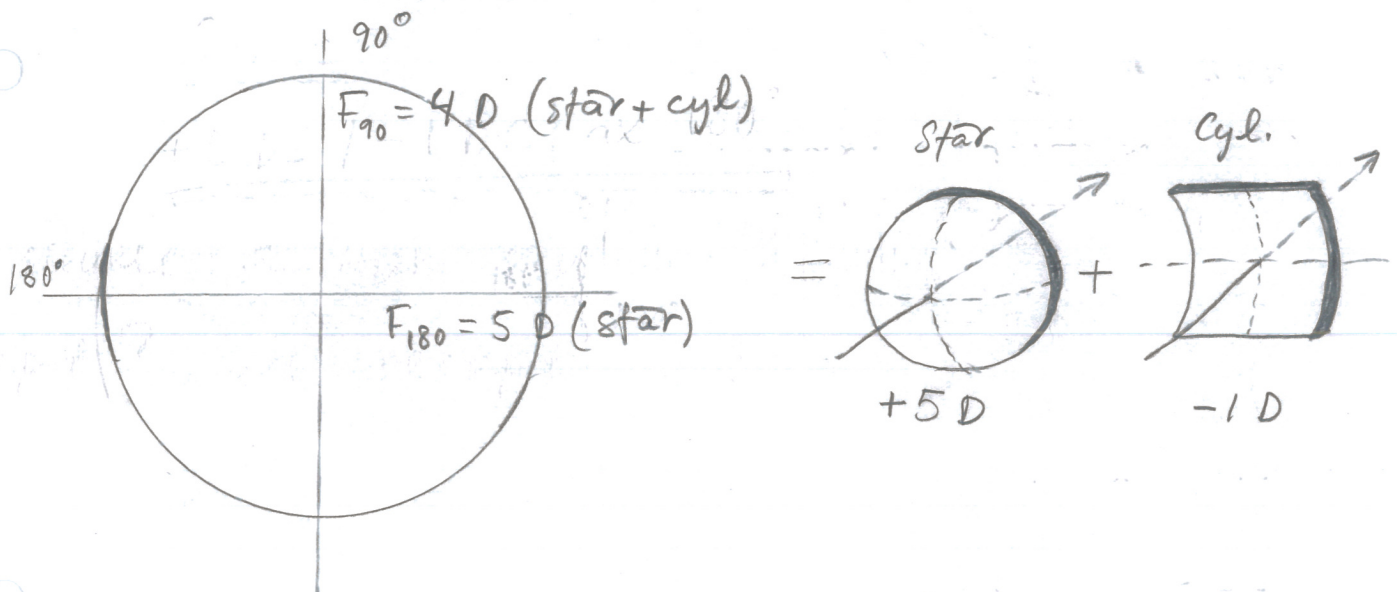 90°
F₉₀ = 4 D (sfär + cyl)
180°
F₁₈₀ = 5 D (sfär)
=
sfär
+5 D
+
Cyl.
-1 D